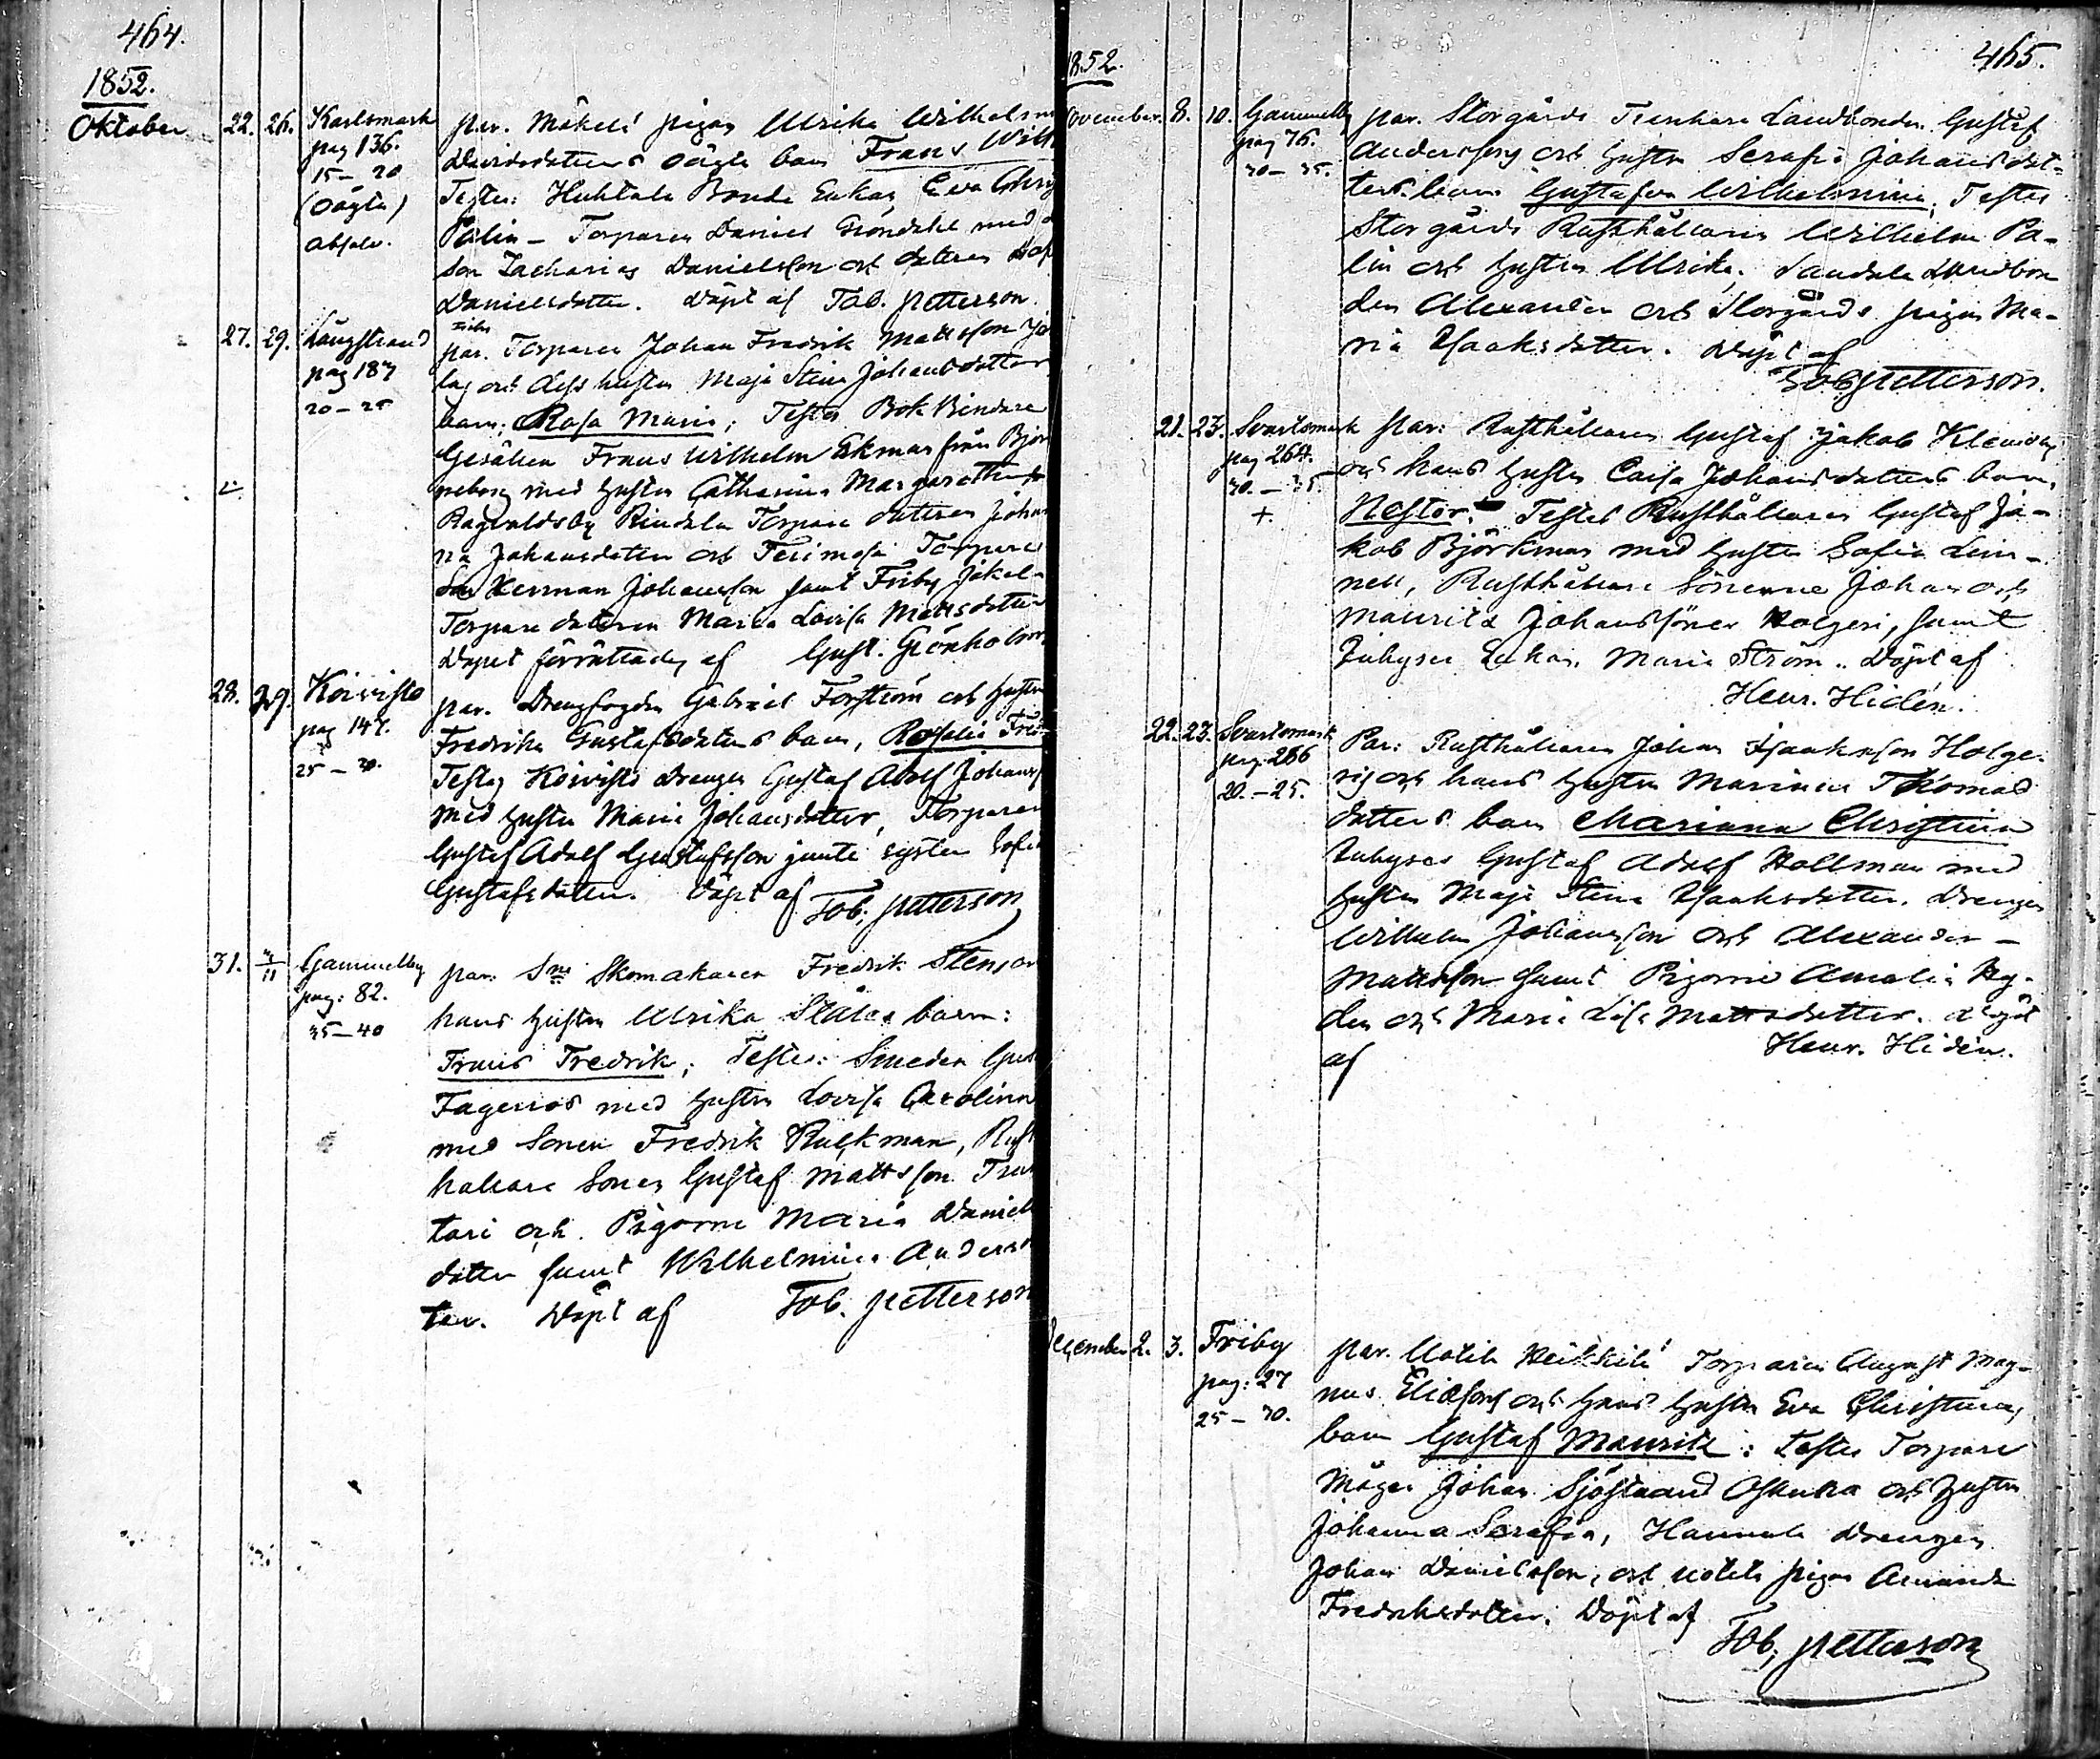 464.
1852.
Oktober
22. 26. Karlsmark
pag 136.
15 – 20
(oägta)
absolv.
par. Mäkelä pigan Ulrika Wilhelm
Davidsdotters oägta barn Frans Wilh
Testes: Huhtala Bonde Enkan Eva Chri
Palin – Torparen Daniel Gröndahl med
Son Zacharias Danielsson och dotteren
Danielsdotter. Döpt af Tob. Petterson.
27. 29. Långstrand
pag 187
20 – 25
par. Torparen Johan Fredrik Mattsson
och dess hustru Maja Stina Johansdotter
barn; Rosa Maria; Testes Bok Bindare
Gesällen Frans Wilhelm Ekman från Björ
neborg med hustru Catharina Margaretha
Ragvaldsby Rindala Torpare dotteren Johan
na Johansdotter och Torpare
Son Herman Johansson samt Friby Jäkel-
Torpare dotteren Maria Lovisa Mattsdotter
Döpet förrättades af Gust. Grönholm.
28. 29. Koivisto
pag 147.
25 – 30.
par. Drengfogden Gabriel Forsström och hustru
Fredrika Gustafsdotters barn, Rosalia Fred
Testes Koivisto Drengen Gustaf Adolf Johans
med hustru Maria Johansdotter, Torparen
Gustaf Adolf Gustafsson jemte syster Sofia
Gustafsdotter. Döpt af Tob. Petterson
31. Gammelby
pag: 82.
35 – 40
par: Skomakaren Fredrik Stenson
hans hustru Ulrika Ståles barn:
Frans Fredrik; Testes: Smeden Gus
Fagerros med hustru Lovisa Carolina
med Sonen Fredrik Ruckman, Rust
hållare Sonen Gustaf Mattsson
tari och Pigorne Maria Daniels
dotter samt Wilhelmina Andersdot
ter. Döpt af Tob. Petterson
1852. 465.
November. 8. 10. Gammelby
pag 76.
30 – 35.
par. Storgårds Landbonden Gustaf
Andersson och hustru Serafia Johansdot=
ters barn Gustafva Wilhelmina; Testes
Storgårds Rusthållaren Wilhelm Pa-
lin och hustru Ulrika; Sandala Landbon
den Alexander och Storgårds pigan Ma-
ria Isaaksdotter. Döpt af
Tob Petterson.
21. 23. Svartsmark
pag 264.
30. – 35.
+.
Par: Rusthållaren Gustaf Jakob
och hans hustru Caisa Johansdotters barn,
Nestor. Testes Rusthållaren Gustaf Ja-
kob Björkman med hustru Sofia Lin-
nell, Rusthållare Sönerne Johan och
Mauritz Johanssöner Holgeri, samt
Inhyses Enkan Maria Ström. Döpt af
Henr. Hidén.
22. 23. Svartsmark
pag. 266
20. – 25.
Par: Rusthållaren Johan Isaaksson Holge-
ri och hans hustru Mariana Thomas
dotters barn Mariana Christina
Inhyses Gustaf Adolf Hallman med
hustru Maja Stina Isaaksdotter. Drengen
Wilhelm Johansson och Alexander –
Mattsson samt Pigorne Amalia Hy-
den och Maria Lisa Mattsdotter. Döpt
af Henr. Hidén.
December 2. 3. Friby
pag: 27
25 – 30.
par. Uotila Heikkilä Torparen August Mag-
nus Eliasson och hans hustru Eva Christinas
barn Gustaf Mauritz: Testes Torpare
Mågen Johan Sjöstrand och hustru
Johanna Serafia, Hannula Drengen
Johan Danielsson, och Uotila pigan Amanda
Fredriksdotter. Döpt af
Tob. Petterson